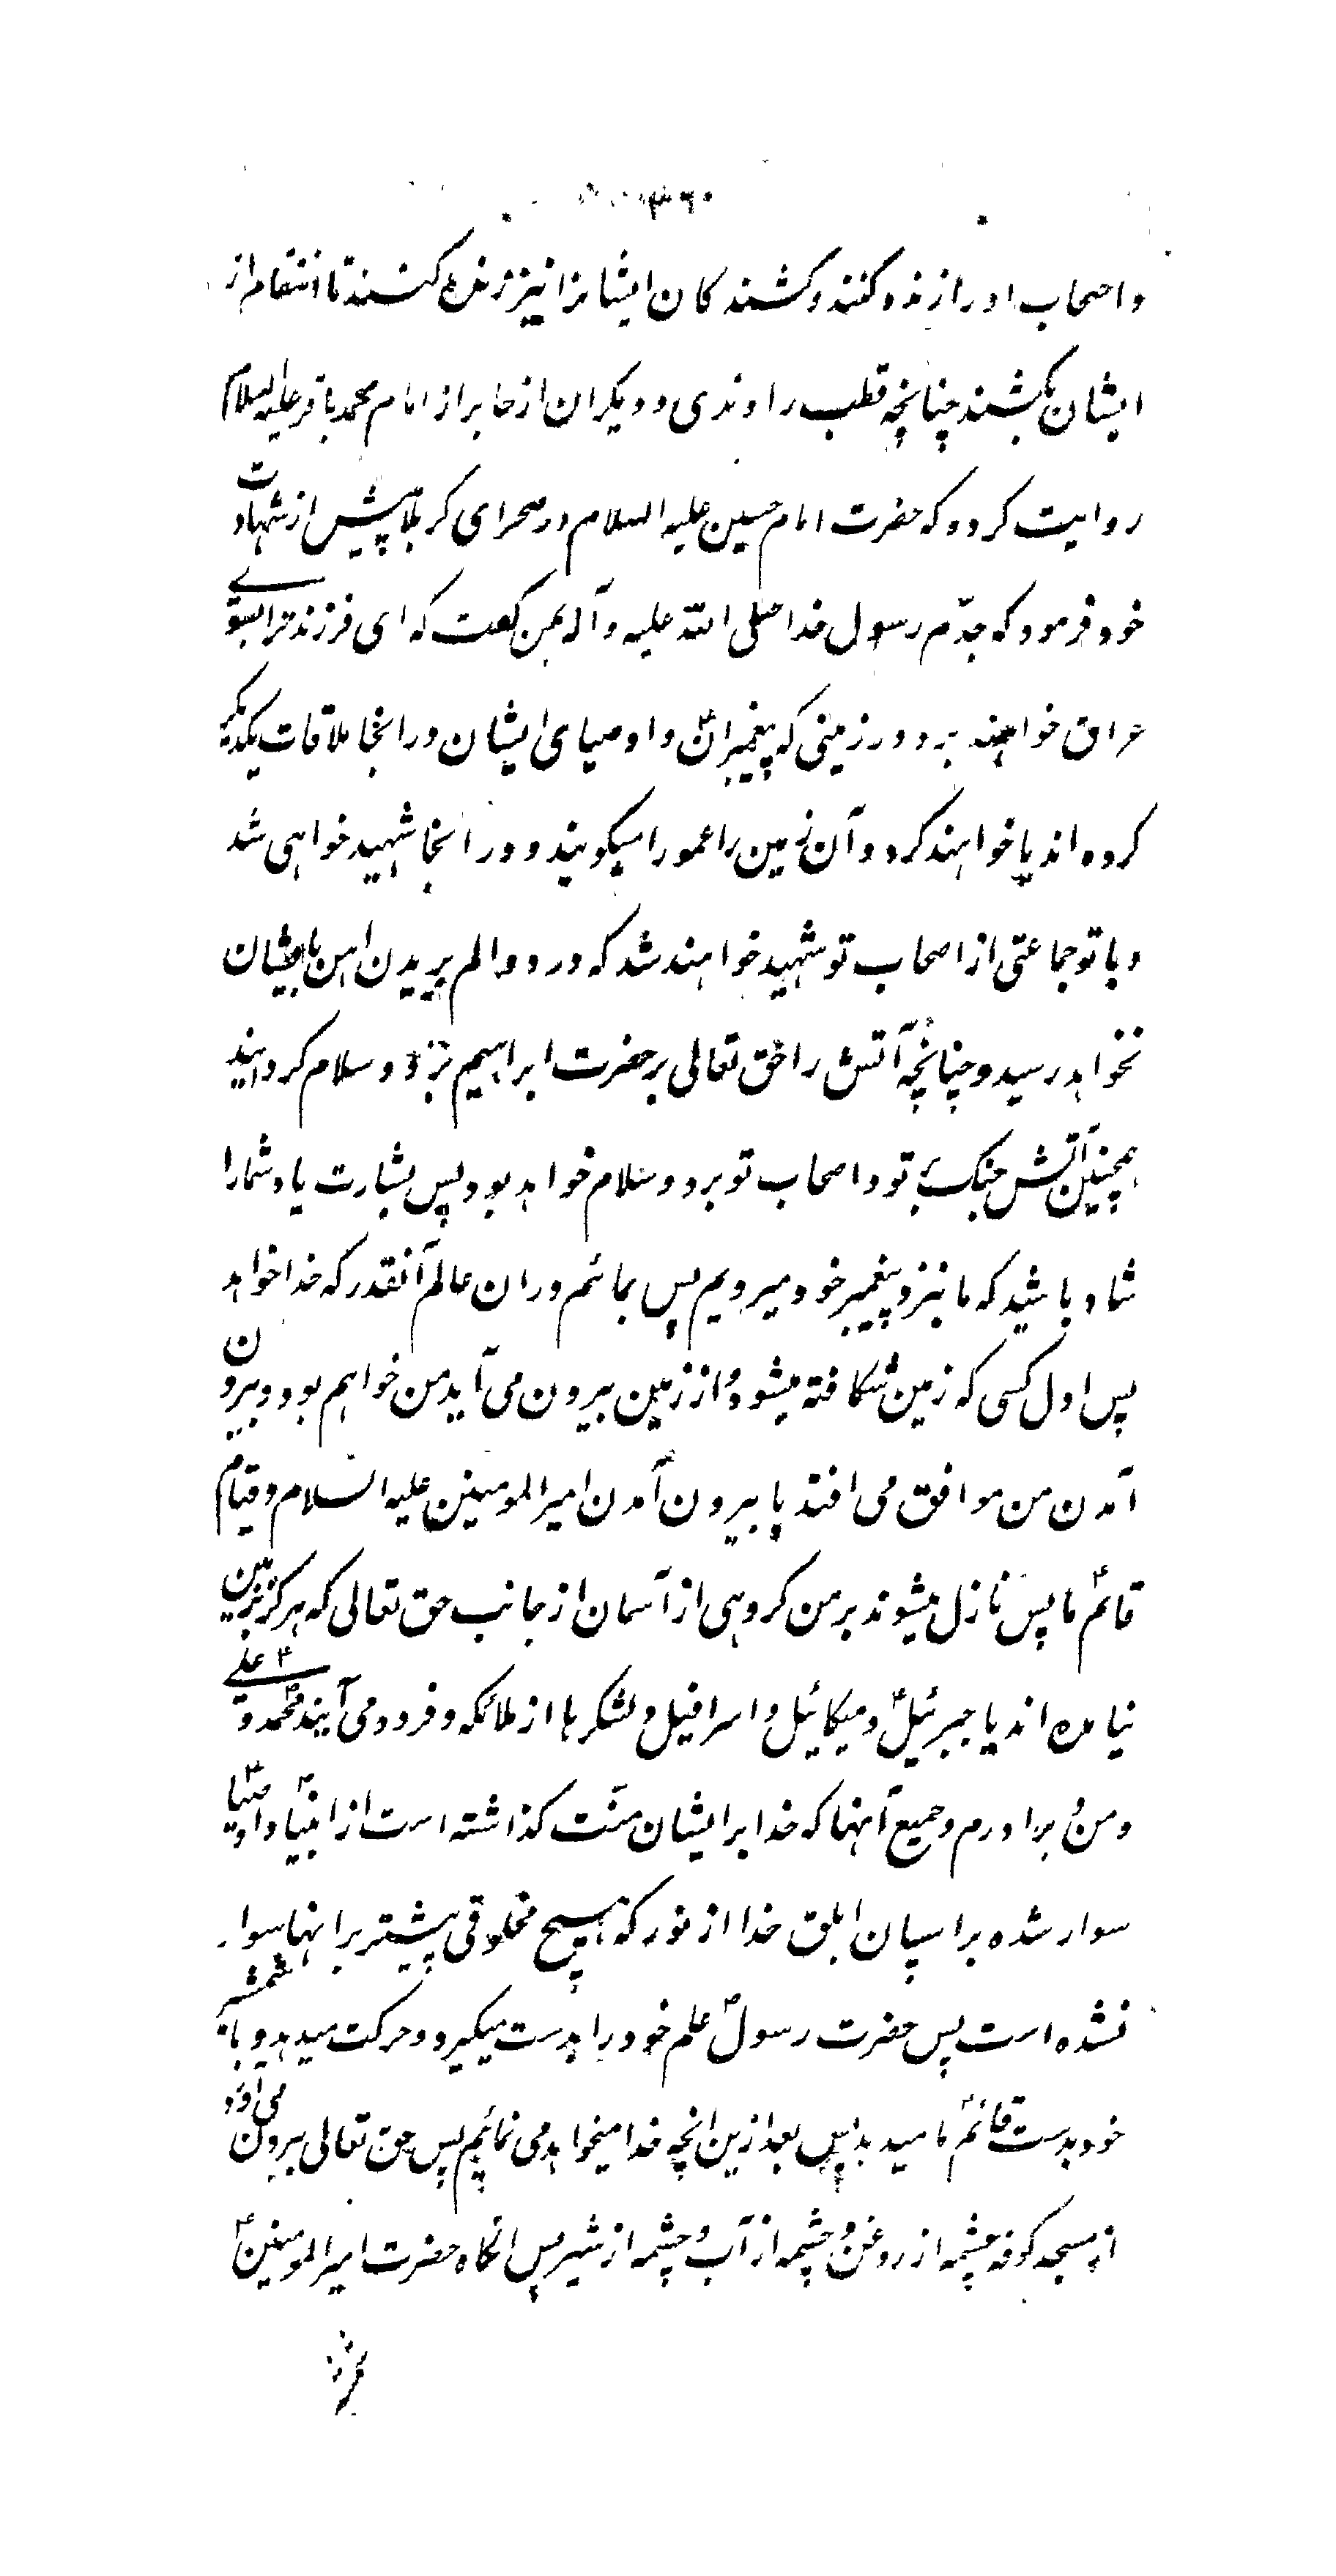 ۳۶۰
و اصحاب او را زنده کنند و کشندکان ایشانرا نیز زنده کنند تا انتقام از
ایشان بکشند چنانچه قطب راوندی و دیکران از جابر از امام محمد باقر علیه السلام
روایت کرده که حضرت امام حسین علیه السلام در صحرای کربلا پیش از شهادت
خود فرمود که جدّم رسول خدا صلی الله علیه و آله بمن کفت که ای فرزند ترا بسوی
عراق خواهند برد در زمینی که پیغمبرانؑ و اوصیای ایشان در انجا ملاقات یکدیکر
کرده اند یا خواهند کرد و آن زمین را عمورا میکویند و در انجا شهید خواهی شد
و با تو جماعتی از اصحاب تو شهید خواهند شد که درد و الم بریدن اهن بایشان
نخواهد رسید و چنانچه آتش را حق تعالی بر حضرت ابراهیم برد و سلام کردانید
همچنین آتش جنک بر تو و اصحاب تو برد و سلام خواهد بود پس بشارت باد شمارا
شاد باشید که ما نیزد پیغمبر خود میرویم پس بمانم دران عالم آنقدر که خدا خواهد
پس اول کسی که زمین شکافته میشود و از زمین بیرون می آید من خواهم بود و بیرون
آمدن من موافق می افتد با بیرون آمدن امیرالمومنین علیه السلام و قیام
قائمؑ ما پس نازل میشوند بر من کروهی از آسمان از جانب حق تعالی که هرکز بزمین
نیامده اند با جبرئیلؑ و میکائیل و اسرافیل و لشکرها از ملائکه و فرود می آیند محمدؐ و علیؑ
و من و برادرم و جمیع آنها که خدا بر ایشان منّت کذاشته است از انبیاؑ و اوصیاؑ
سوار شده بر اسپان ابلق خدا از نور که هیچ مخلوقی پیشتر بر انها سوار
نشده است پس حضرت رسولؐ علم خود را بدست میکیرد و حرکت میدهد و با شمشیر
خود بدست قائمؑ ما میدهد پس بعد ازین انچه خدا میخواهد می نمائیم پس حق تعالی بیرون می آورد
از مسجد کوفه چشمه از روغن و چشمه از آب و چشمه از شیر پس انکاه حضرت امیرالمومنینؑ